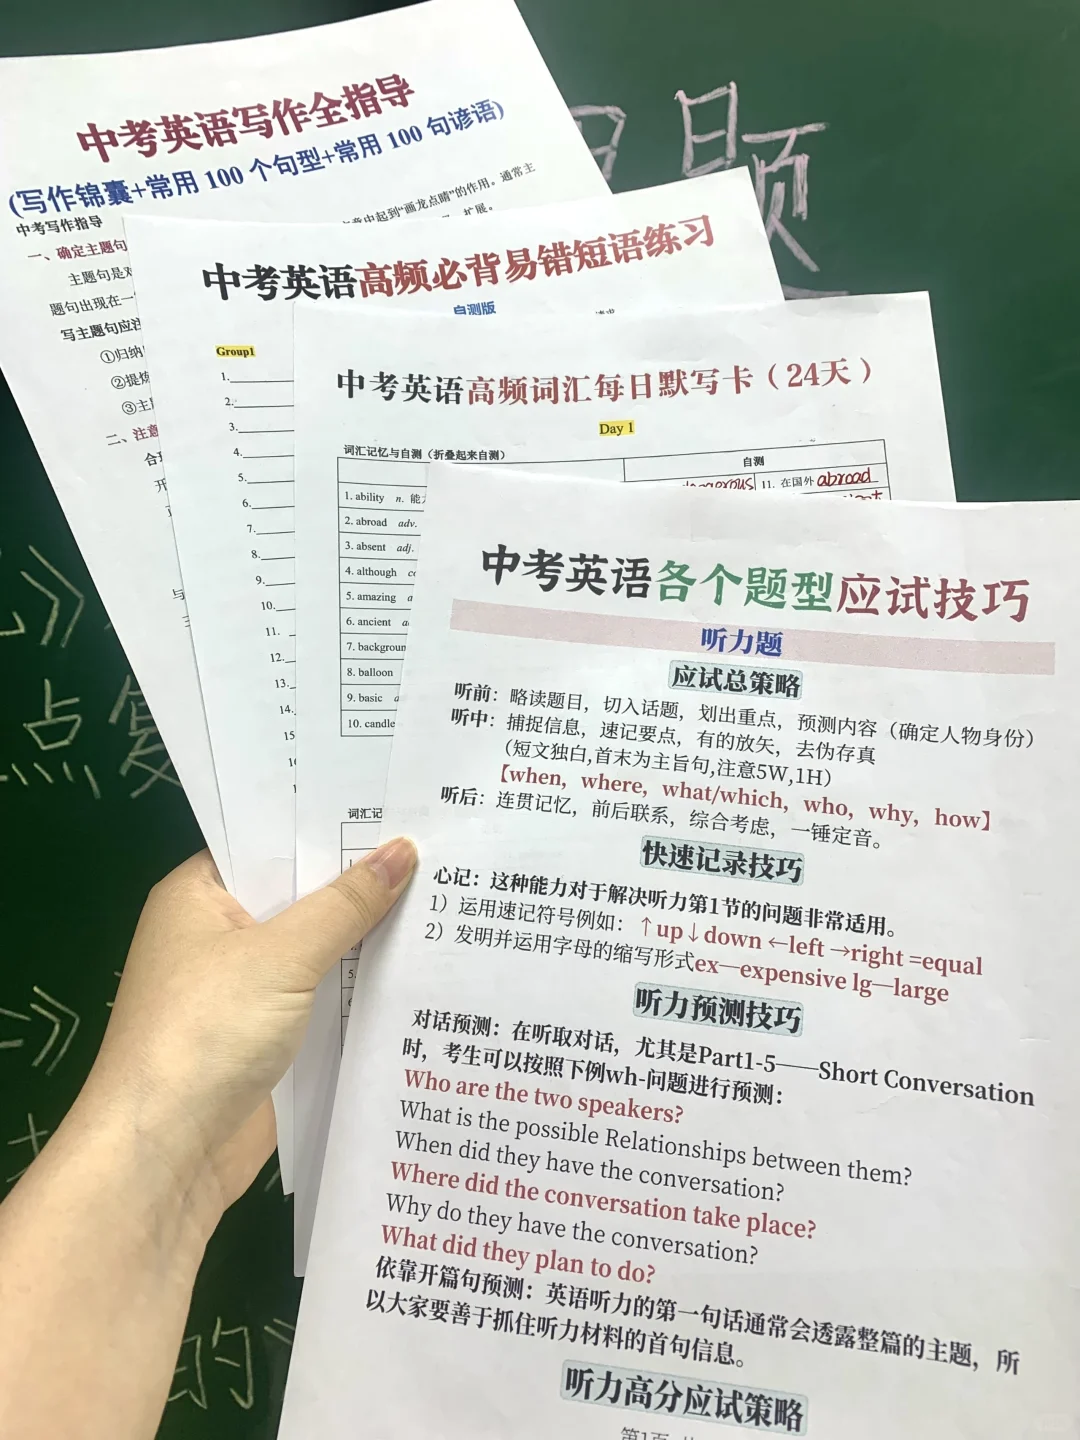 题
点复
的
中考英语写作全指导
(写作锦囊+常用 100 个句型+常用 100 句谚语)
中考写作指导
起到“画龙点睛”的作用。通常主
一、确定主题句
扩展。
主题句是
题句出现在一
写主题句应
①归纳
②提炼
③主
二、注意
合
开
与
中考英语高频必背易错短语练习
自测版
Group1
1.
2.
3.
4.
5.
6.
7.
8.
9.
10.
11.
12.
13.
14.
15
中考英语高频词汇每日默写卡（24天）
Day 1
词汇记忆与自测（折叠起来自测）
自测
11. 在国外 abroad
1. ability n. 能
2. abroad adv.
3. absent adj.
4. although
5. amazing a
6. ancient a
7. backgroun
8. balloon
9. basic a
10. candle
词汇记
5.
中考英语各个题型应试技巧
听力题
应试总策略
听前：略读题目，切入话题，划出重点，预测内容（确定人物身份）
听中：捕捉信息，速记要点，有的放矢，去伪存真
（短文独白,首末为主旨句,注意5W,1H）
【when，where，what/which，who，why，how】
听后：连贯记忆，前后联系，综合考虑，一锤定音。
快速记录技巧
心记：这种能力对于解决听力第1节的问题非常适用。
1）运用速记符号例如：↑up↓down ←left →right =equal
2）发明并运用字母的缩写形式ex—expensive lg—large
听力预测技巧
对话预测：在听取对话，尤其是Part1-5——Short Conversation
时，考生可以按照下例wh-问题进行预测：
Who are the two speakers?
What is the possible Relationships between them?
When did they have the conversation?
Where did the conversation take place?
Why do they have the conversation?
What did they plan to do?
依靠开篇句预测：英语听力的第一句话通常会透露整篇的主题，所
以大家要善于抓住听力材料的首句信息。
听力高分应试策略
第1页